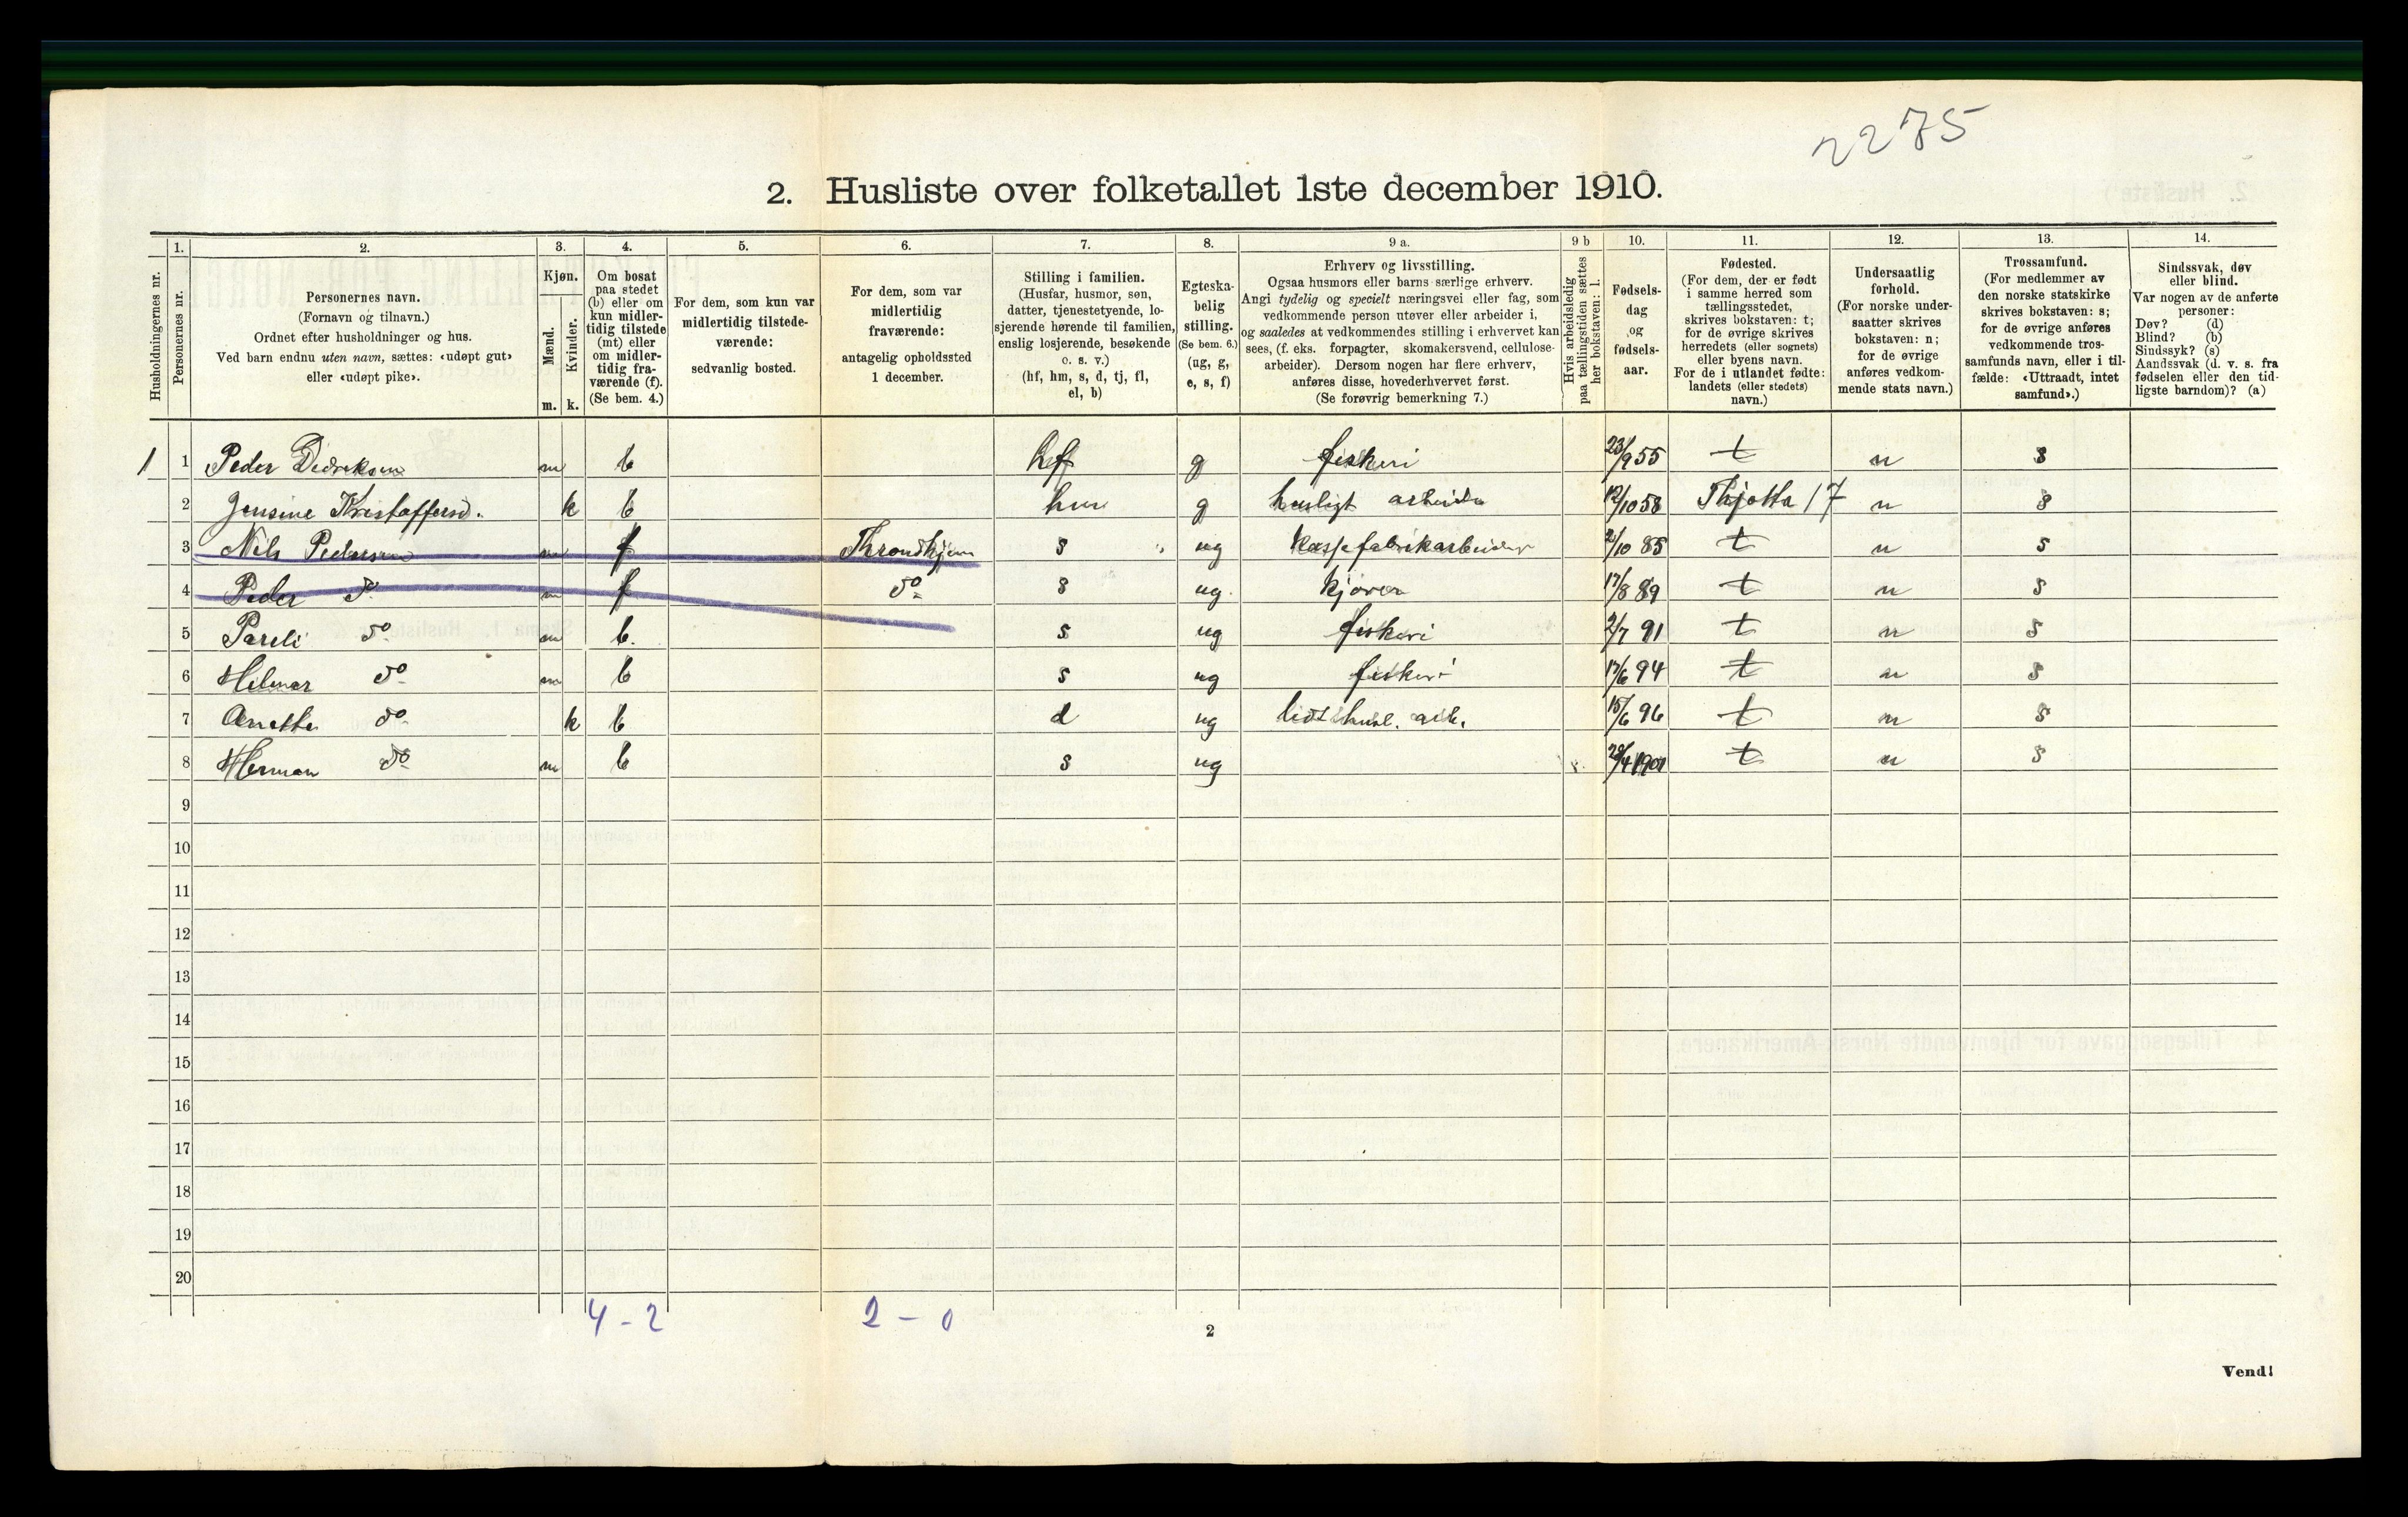 2275
2. Husliste over folketallet 1ste december 1910.
Husholdningernes nr.
1. Personernes nr.
2. Personernes navn.
(Fornavn og tilnavn.)
Ordnet efter husholdninger og hus.
Ved barn endnu uten navn, sættes: «udøpt gut»
eller «udøpt pike».
3. Kjøn.
Mænd. m.
Kvinder. k.
4. Om bosat
paa stedet
(b) eller om
kun midler-
tidig tilstede
(mt) eller
om midler-
tidig fra-
værende (f).
(Se bem. 4.)
5. For dem, som kun var
midlertidig tilstede-
værende:
sedvanlig bosted.
6. For dem, som var
midlertidig
fraværende:
antagelig opholdssted
1 december.
7. Stilling i familien.
(Husfar, husmor, søn,
datter, tjenestetyende, lo-
sjerende hørende til familien,
enslig losjerende, besøkende
o. s. v.)
(hf, hm, s, d, tj, fl,
el, b)
8. Egteska-
belig
stilling.
(Se bem. 6.)
(ug, g,
e, s, f)
9 a. Erhverv og livsstilling.
Ogsaa husmors eller barns særlige erhverv.
Angi tydelig og specielt næringsvei eller fag, som
vedkommende person utøver eller arbeider i,
og saaledes at vedkommendes stilling i erhvervet kan
sees, (f. eks. forpagter, skomakersvend, cellulose-
arbeider). Dersom nogen har flere erhverv,
anføres disse, hovederhvervet først.
(Se forøvrig bemerkning 7.)
9 b Hvis arbeidsledig
paa tællingstiden sættes
her bokstaven: l.
10. Fødsels-
dag
og
fødsels-
aar.
11. Fødested.
(For dem, der er født
i samme herred som
tællingsstedet,
skrives bokstaven: t;
for de øvrige skrives
herredets (eller sognets)
eller byens navn.
For de i utlandet fødte:
landets (eller stedets)
navn.)
12. Undersaatlig
forhold.
(For norske under-
saatter skrives
bokstaven: n;
for de øvrige
anføres vedkom-
mende stats navn.)
13. Trossamfund.
(For medlemmer av
den norske statskirke
skrives bokstaven: s;
for de øvrige anføres
vedkommende tros-
samfunds navn, eller i til-
fælde: «Uttraadt, intet
samfund».)
14. Sindssvak, døv
eller blind.
Var nogen av de anførte
personer:
Døv? (d)
Blind? (b)
Sindssyk? (s)
Aandssvak (d. v. s. fra
fødselen eller den tid-
ligste barndom)? (a)
1 1 Peder Didriksen m b hf g fiskeri 23/9 55 t n s
2 Jensine Kristoffersd. k b hm g husligt arbeide 12/10 58 Thjøtta 17 n s
3 Nils Pedersen m f Throndhjem s ug kassefabrikarbeider 2/10 85 t n s
4 Peder do m f do s ug kjører 17/8 89 t n s
5 Pareli do m b. s ug fiskeri 2/7 91 t n s
6 Hilmar do m b s ug fiskeri 17/6 94 t n s
7 Anette do k b d ug lidt husl. arb. 15/6 96 t n s
8 Herman do m b s ug 28/4 1901 t n s
9
10
11
12
13
14
15
16
17
18
19
20
4 - 2 2 - 0
2
Vend!